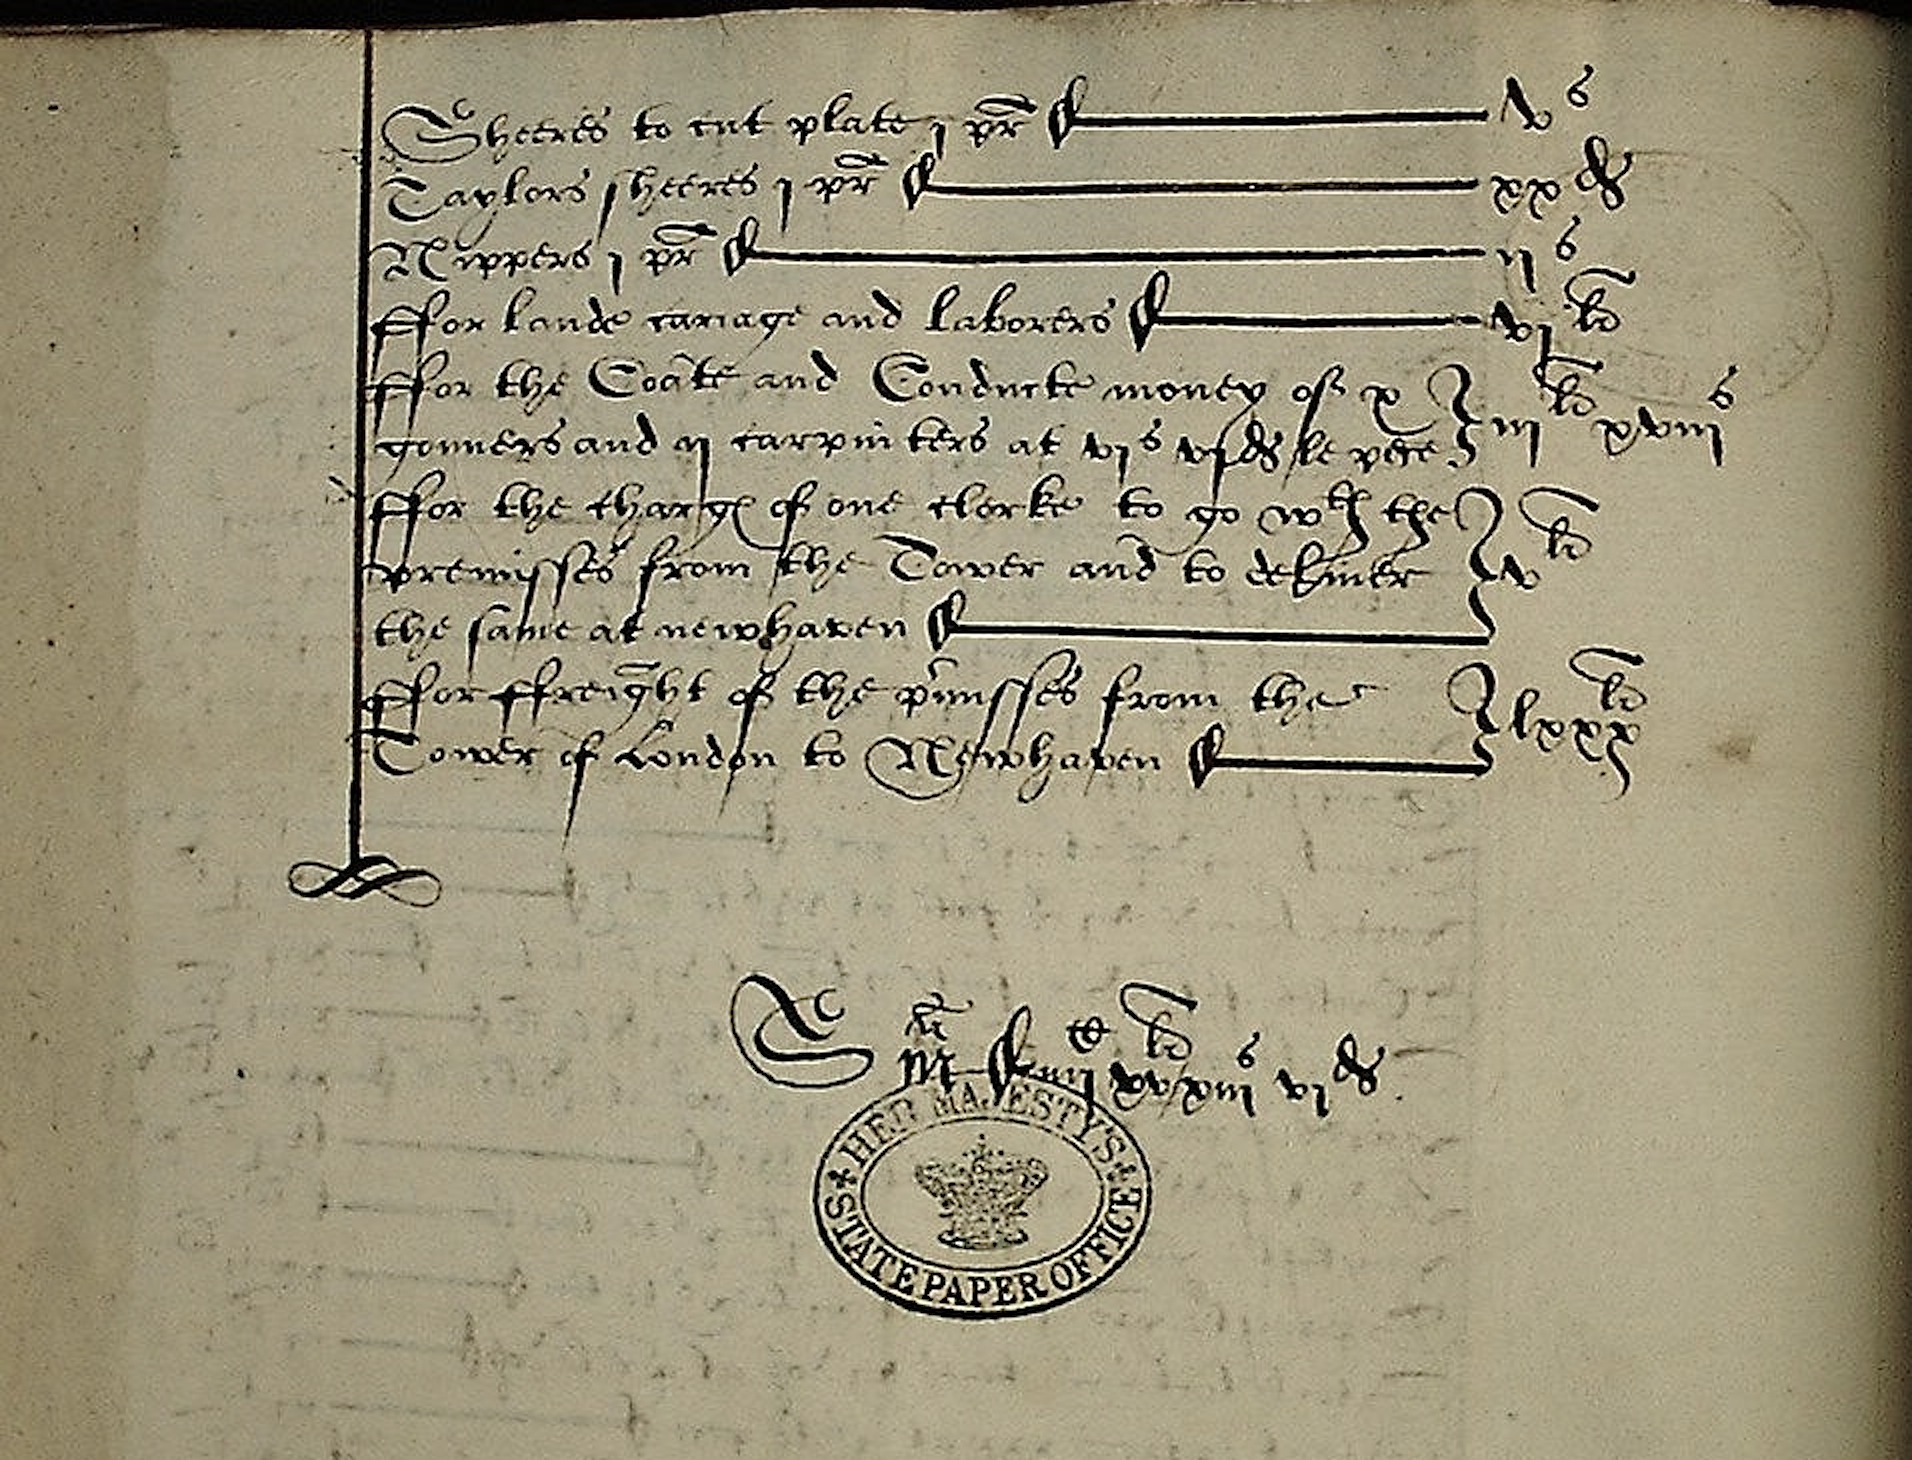 Sheeres to cut plate j pr v s
Taylors sheeres j pr xx d
Nippers j pr ij s
ffor lande cariage and laborers vj li
ffor the Coate and Conducte money of x
gonners and ij carpinters at vj s vj d le pece iij li xviij s
ffor the charg of one clerke to go wth the
premisses from the Tower and to deliuer v li
the same at newhaven
ffor ffreight of the pmisses from the
Tower of London to Newhaven lxxx li
S m iiij xx xv xiij s vj d
HER MAJESTY'S
STATE PAPER OFFICE